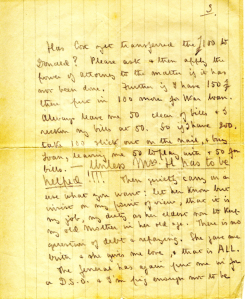 3.
Has Cox yet transferred the £100 to
Donald? Please ask & then apply the
power of attorney to the matter if it has
not been done. Further if I have 150 £
then put in 100 more for War Loan.
Always leave me 50 clear of bills & I
reckon my bills at 50. So if I have 200,
take 100 stick out on the nail, & buy
Loan, leaving me 50 to play with & 50 for
bills. — Unless Mrs "H" has to be
helped !!!! Then quietly carry on &
use what you want; let her know but
insist on my point of view, that it is
my job, my duty as her eldest son to keep
my old Mother in her old age. There is no
question of debt & repaying. She gave me
birth & she gave me love, & that is ALL.
The General has again put me in for
a D.S.O. & I'm pig enough not to be